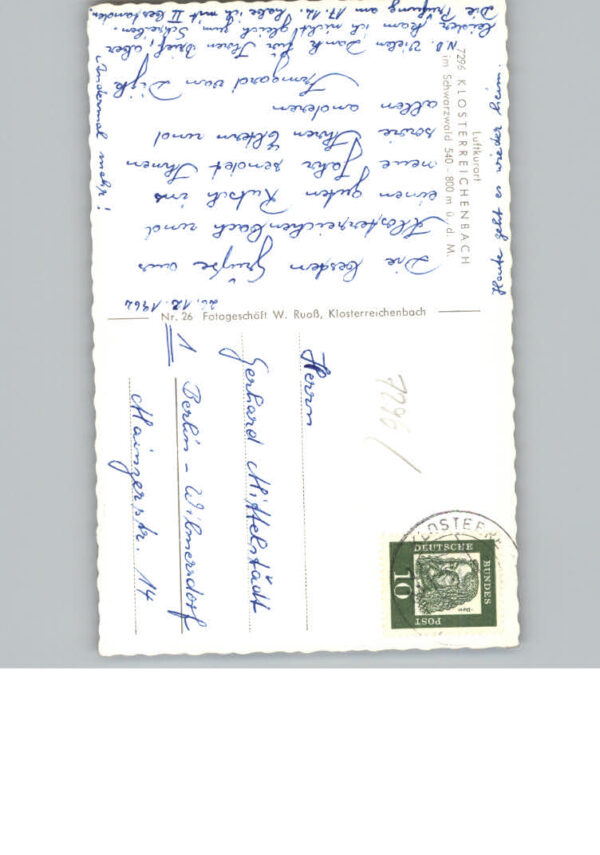 Luftkurort
7296 KLOSTERREICHENBACH
im Schwarzwald 540 - 800 m ü. d. M.
Heute geht es wieder heim.
26.12.1962
Die besten Grüße aus
Klosterreichenbach und
einen guten Rutsch ins
neue Jahr sendet Ihnen
sowie Ihren Eltern und
allen anderen
Irmgard van
N.B. Vielen Dank für Ihren Brief, aber
leider kam ich nicht gleich zum Schreiben.
Die Prüfung am 17.12. habe ich mit II bestanden.
Andermal mehr!
Nr. 26 Fotogeschäft W. Ruoß, Klosterreichenbach
7296/
KLOSTERR
DEUTSCHE
BUNDES
POST
10
Herrn
Gerhard Mittelstädt
1 Berlin - Wilmersdorf
Mainzerstr. 14